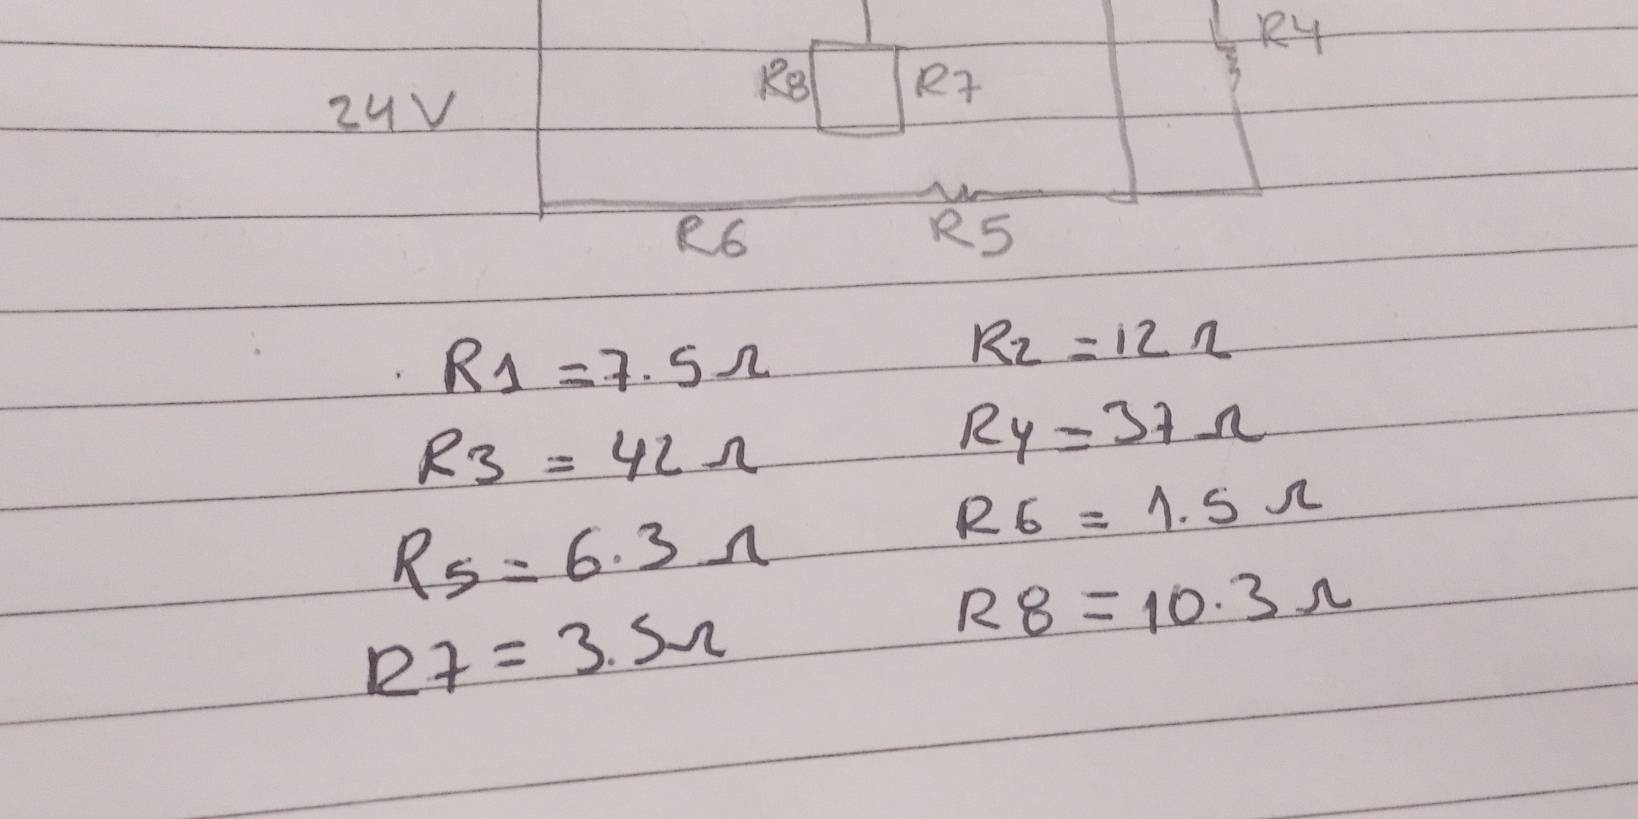 R4
R8 R7
24V
R6 R5
R1 = 7.5 Ω R2 = 12 Ω
R3 = 42 Ω R4 = 37 Ω
R5 = 6.3 Ω R6 = 1.5 Ω
R7 = 3.5 Ω R8 = 10.3 Ω